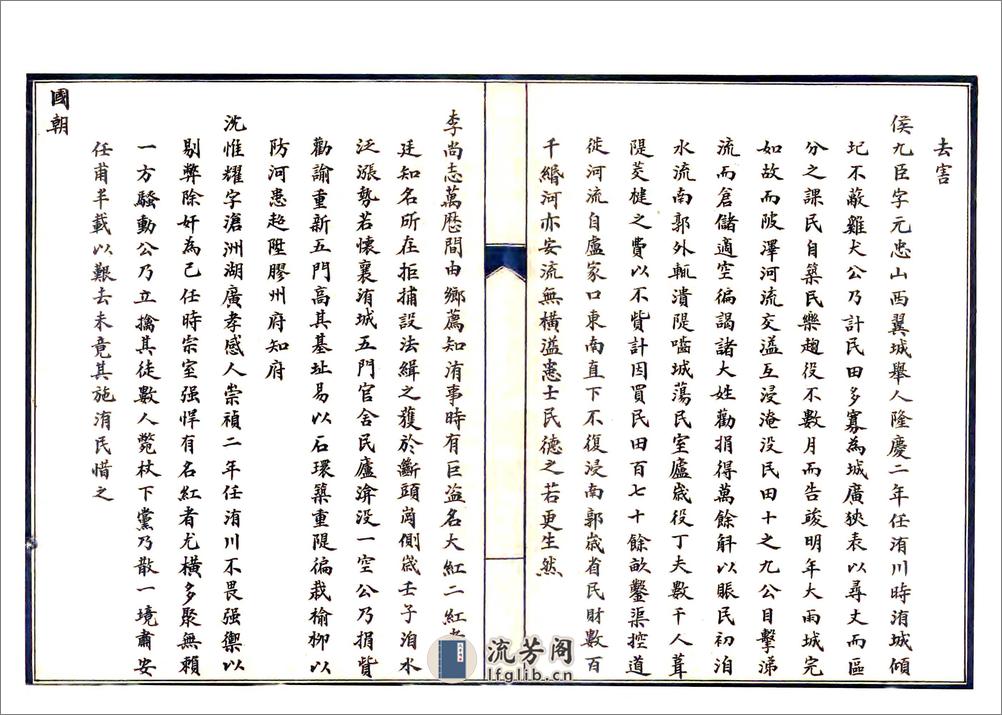 去害
侯九臣字元忠山西翼城舉人隆慶二年任洧川時洧城傾
圮不蔽雞犬公乃計民田多寡為城廣狹表以尋丈而區
分之課民自築民樂趨役不數月而告竣明年大雨城完
如故而陂澤河流交溢互浸淹没民田十之九公目擊涕
流而倉儲適空徧謁諸大姓勸捐得萬餘斛以賑民初洎
水流南郭外輒潰隄嚙城蕩民室廬歲役丁夫數千人葺
隄茭楗之費以不貲計因買民田百七十餘畝鑿渠控道
徙河流自盧家口東南直下不復浸南郭歲省民財數百
千緡河亦安流無橫溢患士民德之若更生然
李尚志萬歷間由鄉薦知洧事時有巨盜名大紅二紅者
廷知名所在拒捕設法緝之獲於斷頭崗側歲壬子洎水
泛漲勢若懷襄洧城五門官舍民廬渰没一空公乃捐貲
勸諭重新五門高其基址易以石環築重隄徧栽榆柳以
防河患起陞膠州府知府
沈惟耀字滄洲湖廣孝感人崇禎二年任洧川不畏强禦以
剔弊除奸為己任時宗室强悍有名紅者尤橫多聚無賴
一方騷動公乃立擒其徒數人斃杖下黨乃散一境肅安
任甫半載以艱去未竟其施洧民惜之
國朝
流芳阁
lfglib.cn